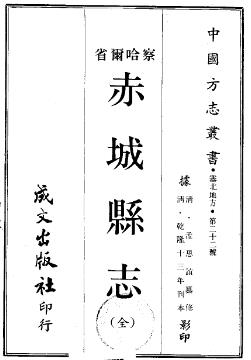 中國方志叢書·塞北地方·第二十二號
據清·孟思誼纂修
清·乾隆十三年刊本影印
察哈爾省
赤城縣志
(全)
成文出版社印行